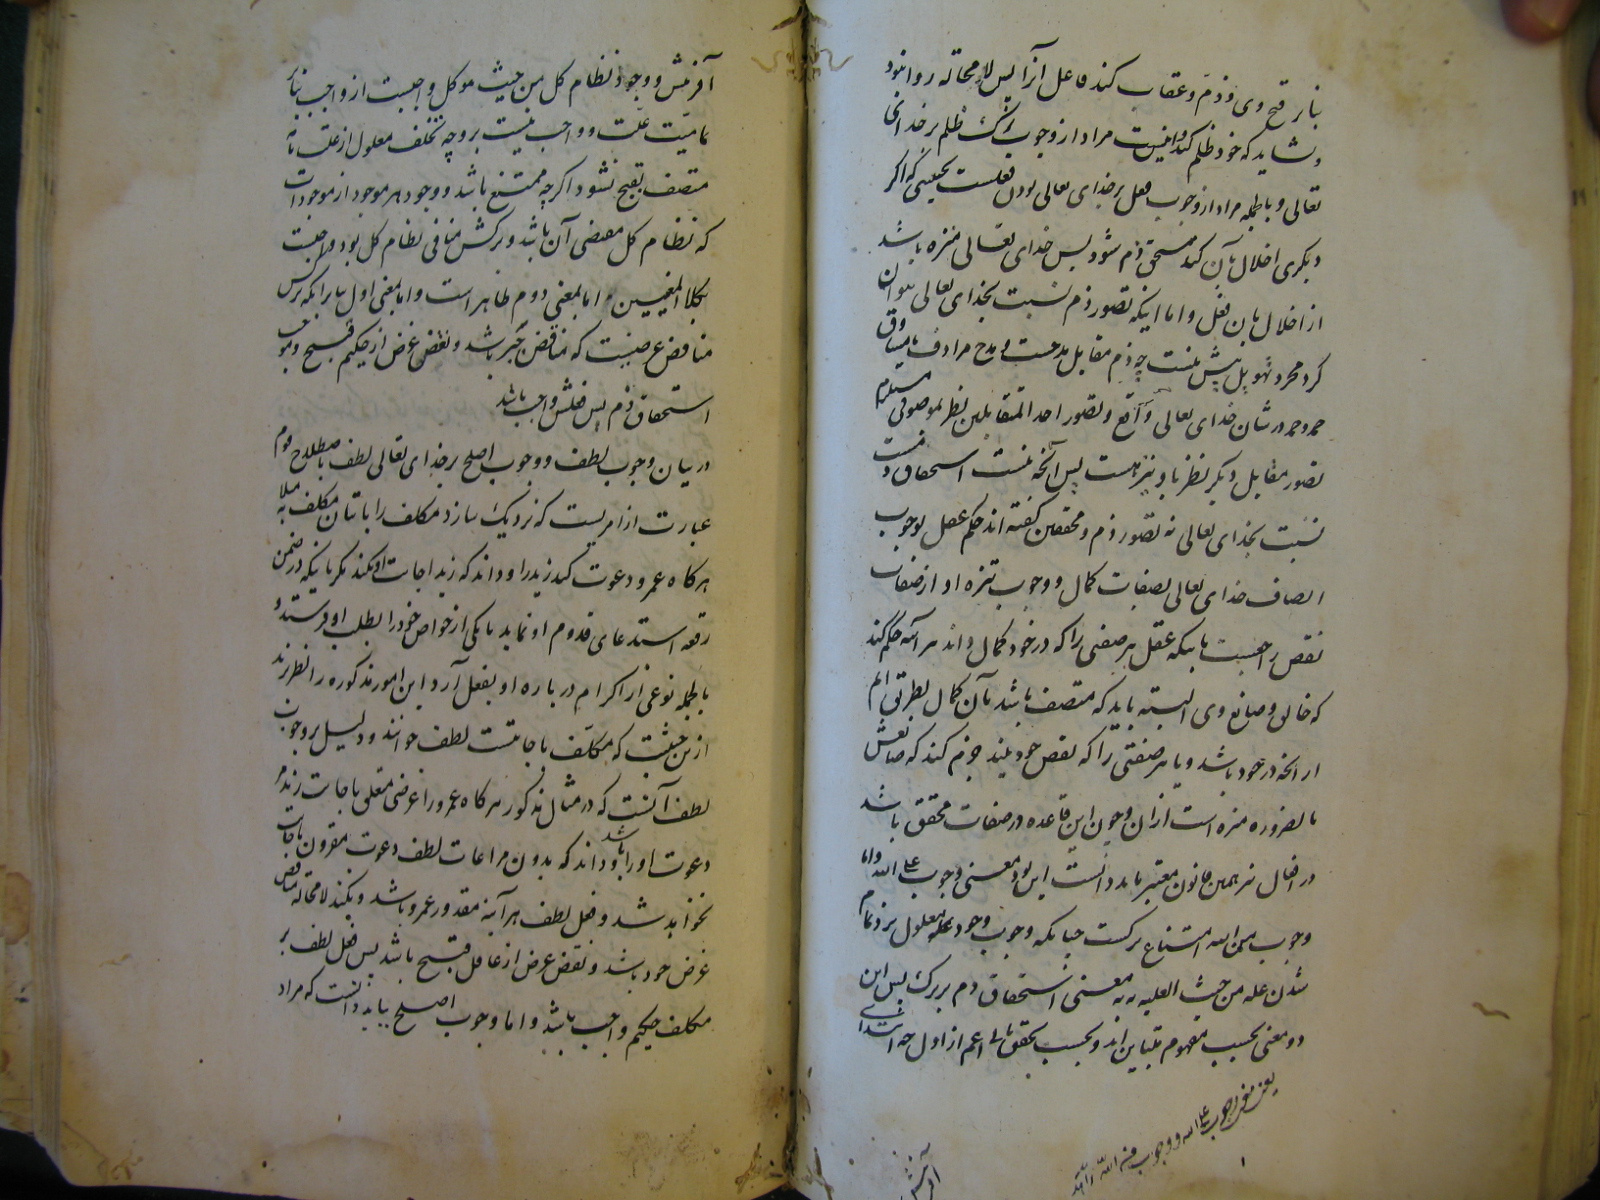 بنا بر قبح وی و ذم و عقاب کند فاعل آنرا پس لا محاله روا نبود
و نشاید که خود ظلم کند و نیست مراد از وجوب ترک ظلم بر خدای
تعالی و بالجمله مراد از وجوب فعل بر خدای تعالی بودن فعلست بحیثی که اگر
دیگری اخلال بآن کند مستحق ذم شود پس خدای تعالی منزه باشد
از اخلال بآن فعل و اما اینکه تصور ذم نسبت بخدای تعالی نتوان
کرد مجرد تهویل بیش نیست چه ذم مقابل مدحست و مدح مرادف یا مساوق
حمد و حمد در شان خدای تعالی واقع و تصور احد المتقابلین نظر بموصوفی مستلزم
تصور مقابل دیگر نظر باو نیز هست پس آنچه نیست استحقاق ذمست
نسبت بخدای تعالی نه تصور ذم و محققین گفته اند حکم عقل بوجوب
اتصاف خدای تعالی بصفات کمال و وجوب تنزه او از صفات
نقص راجعست باینکه عقل هر صفتی را که در خود کمال داند هر آینه حکم کند
که خالق و صانع وی البته باید که متصف باشد بآن کمال بطریق اتم
از آنچه در خود باشد و یا هر صفتی را که نقص خود بیند جزم کند که صانعش
بالضروره منزه است از آن و چون این قاعده در صفات محقق باشد
در افعال نیز همین قانون معتبر باید دانست این بود معنی وجوب علی الله و اما
وجوب من الله امتناع ترکست چنانکه وجوب وجود معلول نزد تمام
شدن علت من حیث العلیه نه به معنی استحقاق ذم بر ترک پس این
دو معنی بحسب مفهوم متباین اند و بحسب تحقق ثانی اعم از اول چه ابتدای
یعنی معنی وجوب علی الله و وجوب من الله
آفرینش
آفرینش و وجود نظام کل من حیث هو کل واجبست از واجب بنابر
تمامیت علت و واجب نیست بر وی چه تخلف معلول از علت تامه
متصف بقبح نشود اگر چه ممتنع باشد و وجود هر موجود از موجودات
که نظام کل مقتضی آن باشد و ترکش منافی نظام کل بود واجبست
بکلا المعنیین اما بمعنی دوم ظاهر است و اما بمعنی اول بنابر آنکه ترکش
مناقض غرضیست که مناقض خیر باشد و نقض غرض از حکیم قبیح و موجب
استحقاق ذم پس فعلش واجب باشد
در بیان وجوب لطف و وجوب اصلح بر خدای تعالی لطف باصطلاح قوم
عبارت از امریست که نزدیک سازد مکلف را باتیان مکلف به مثلا
هرگاه عمرو دعوت کند زید را و داند که زید اجابت او نکند مگر باینکه در ضمن
رقعه استدعای قدوم او نماید یا یکی از خواص خود را بطلب او فرستد و
بالجمله نوعی از اکرام در باره او بفعل آرد این امور مذکوره را نظر بزید
از این حیثیت که مکلف باجابتست لطف خوانند و دلیل بر وجوب
لطف آنست که در مثال مذکور هرگاه عمرو را غرضی متعلق باجابت زید مر
دعوت او را باشد و داند که بدون مراعات لطف دعوت مقرون باجابت
نخواهد شد و فعل لطف هر آینه مقدور عمرو باشد و نکند لا محاله مناقض
غرض خود باشد و نقض غرض از عاقل قبیح باشد پس فعل لطف بر
مکلف حکیم واجب باشد و اما وجوب اصلح بباید دانست که مراد